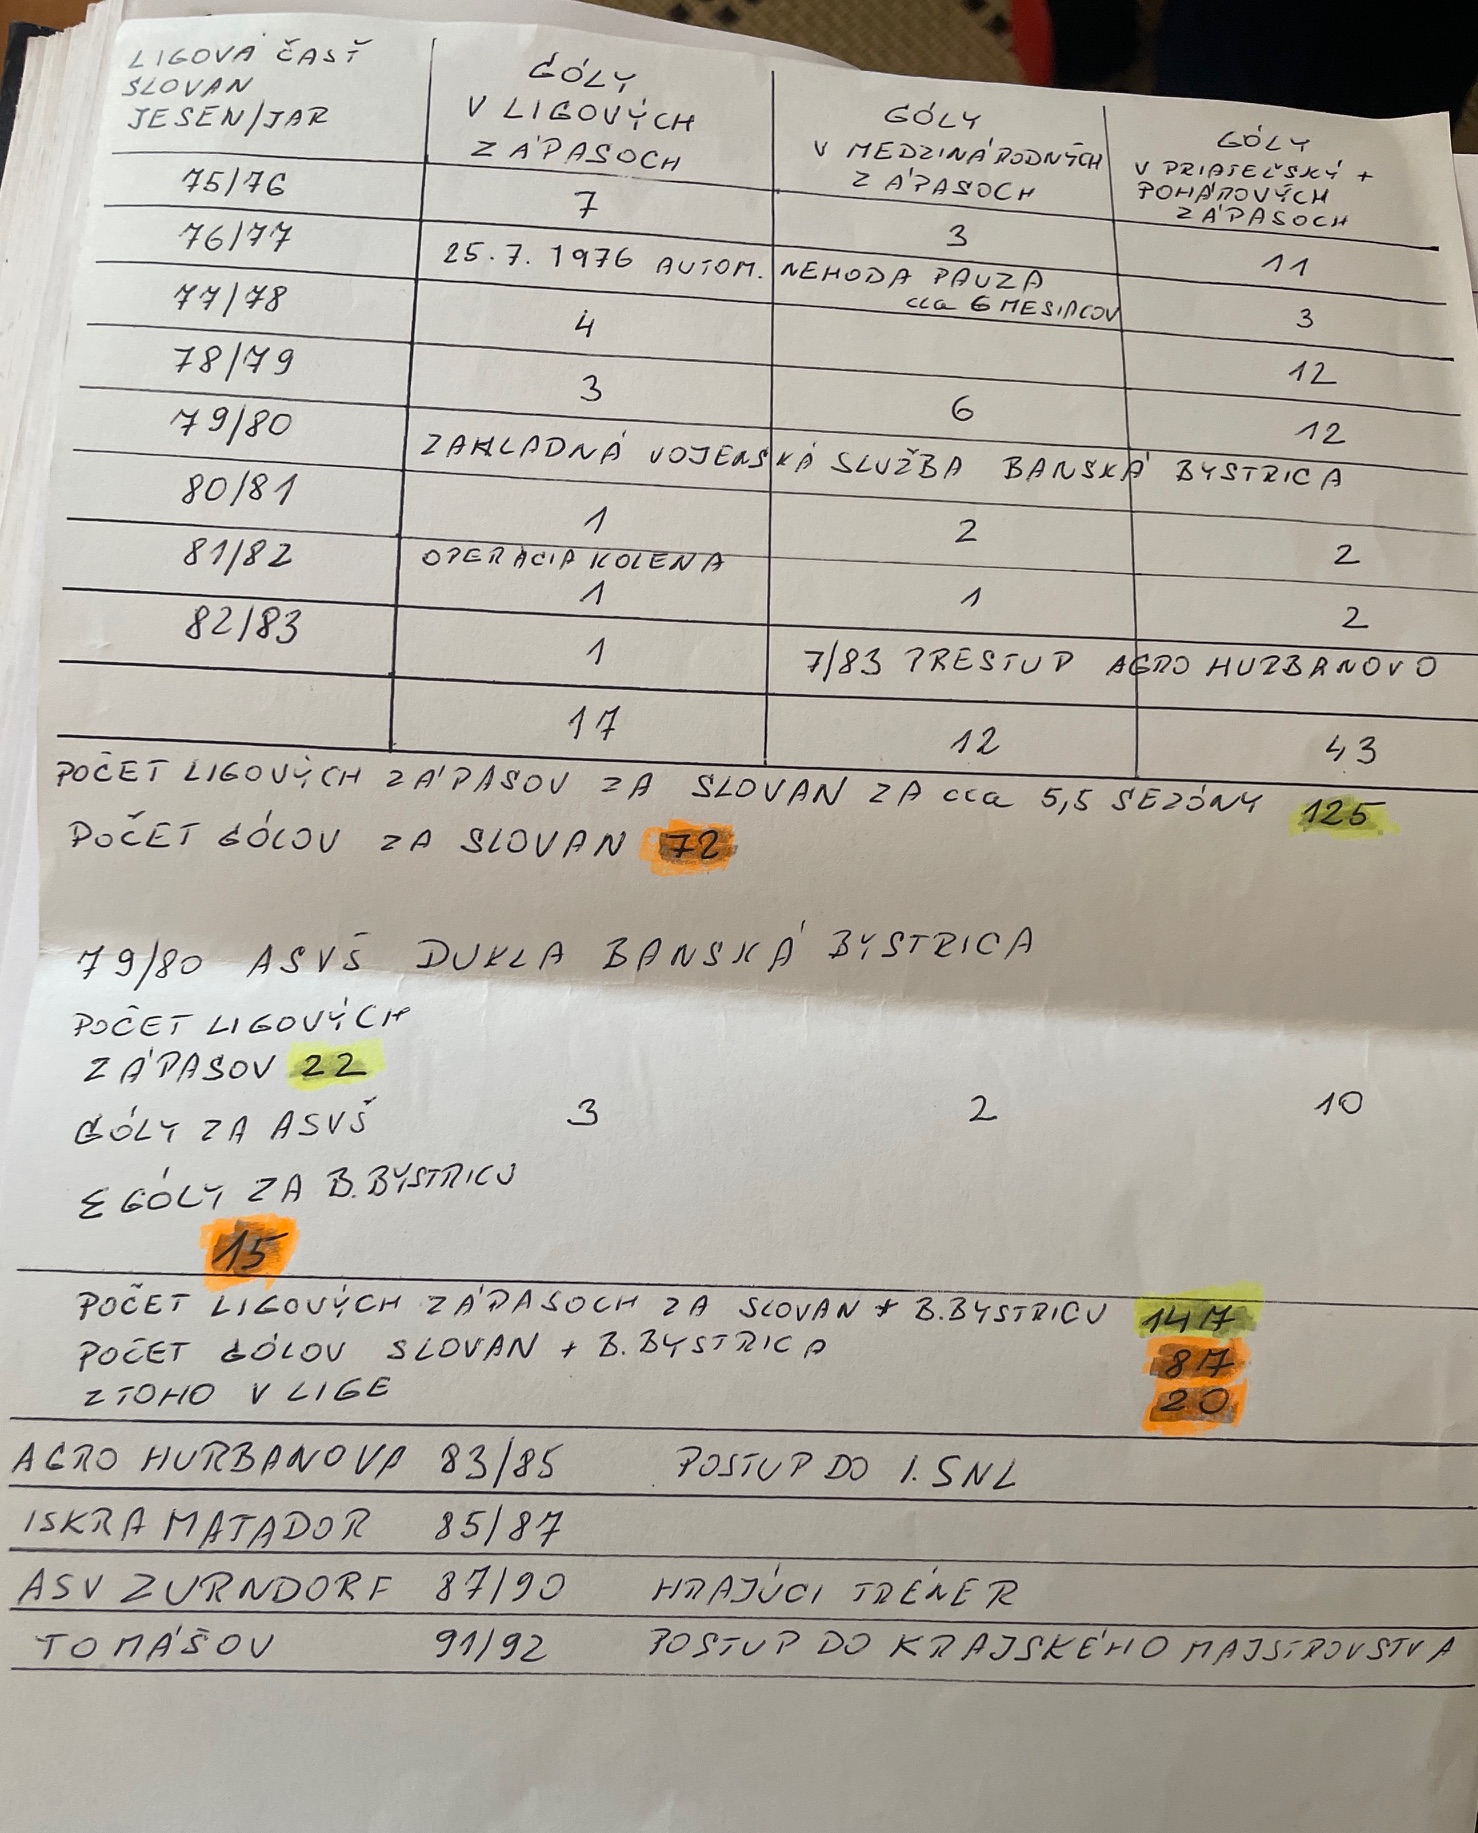 LIGOVÁ ČASŤ
SLOVAN
JESEŇ/JAR
GÓLY
V LIGOVÝCH
ZÁPASOCH
GÓLY
V MEDZINÁRODNÝCH
ZÁPASOCH
GÓLY
V PRIATEĽSKÝ +
POHÁROVÝCH
ZÁPASOCH
75/76 7 3 11
76/77 25.7.1976 AUTOM. NEHODA PAUZA
cca 6 MESIACOV 3
77/78 4 12
78/79 3 6 12
79/80 ZAKLADNÁ VOJENSKÁ SLUŽBA BANSKÁ BYSTRICA
80/81 1 2 2
81/82 OPERÁCIA KOLENA
1 1 2
82/83 1 7/83 PRESTUP AGRO HURBANOVO
17 12 43
POČET LIGOVÝCH ZÁPASOV ZA SLOVAN ZA cca 5,5 SEZÓNY 125
POČET GÓLOV ZA SLOVAN 72
79/80 ASVŠ DUKLA BANSKÁ BYSTRICA
POČET LIGOVÝCH
ZÁPASOV 22
GÓLY ZA ASVŠ 3 2 10
Σ GÓLY ZA B.BYSTRICU
15
POČET LIGOVÝCH ZÁPASOCH ZA SLOVAN + B.BYSTRICU 147
POČET GÓLOV SLOVAN + B.BYSTRICA 87
Z TOHO V LIGE 20
AGRO HURBANOVA 83/85 POSTUP DO I. SNL
ISKRA MATADOR 85/87
ASV ZURNDORF 87/90 HRAJÚCI TRÉNER
TOMÁŠOV 91/92 POSTUP DO KRAJSKÉHO MAJSTROVSTVA